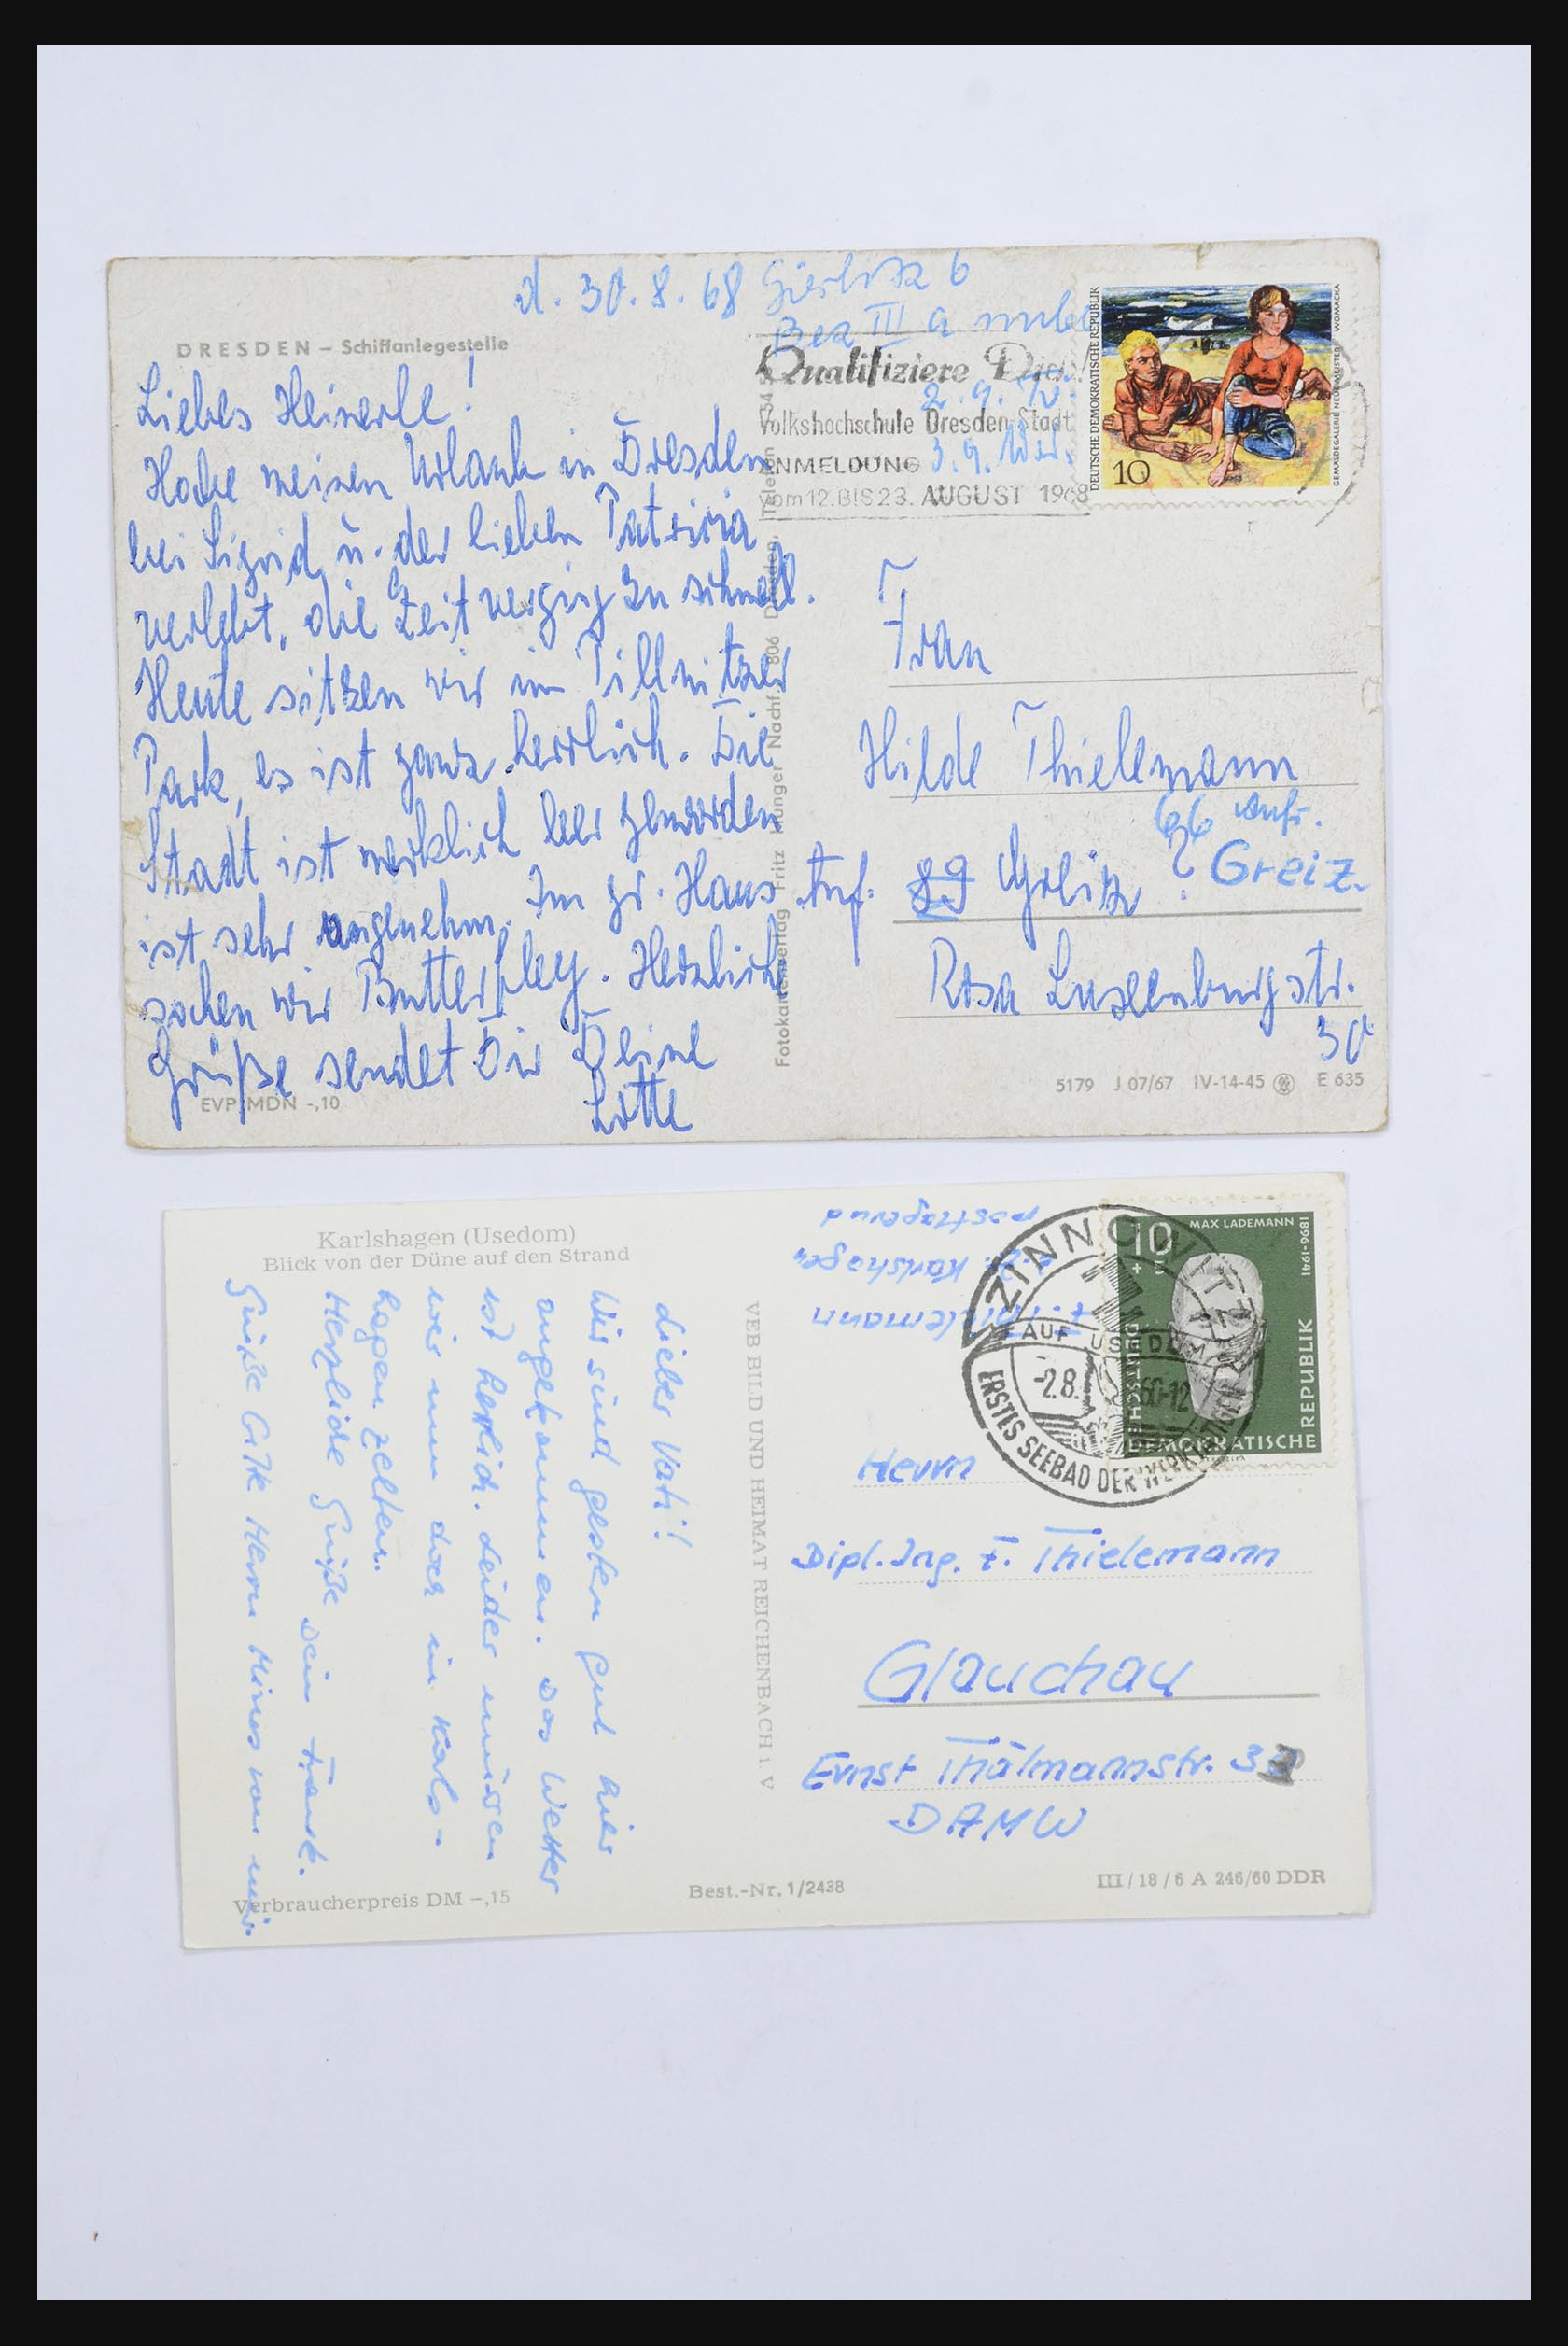 d. 30. 8. 68
Görlitz 6
Bez III a unbe
DRESDEN – Schiffanlegestelle
Liebes Heinerle!
Habe meinen Urlaub in Dresden
bei Sigrid u. der lieben Patricia
verlebt, die Zeit verging zu schnell.
Heute sitzen wir im Pillnitzer
Park, es ist ganz herrlich. Die
Stadt ist merklich leer geworden
ist sehr angenehm. Im gr. Haus
sahen wir Butterfley. Herzlich
Grüße sendet Dir Deine
Lotte
EVP MDN -,10
Fotokartenverlag Fritz Hunger Nachf., 806 Dresden, Telefon 54
Qualifiziere Dich
Volkshochschule Dresden-Stadt
ANMELDUNG
vom 12. BIS 23. AUGUST 1968
2. 9.
3. 9.
DEUTSCHE DEMOKRATISCHE REPUBLIK
10
GEMÄLDEGALERIE NEUE MEISTER WOMACKA
Frau
Hilde Thielemann
696 Anfr.
Auf. 89 Görlitz ? Greiz.
Rosa Luxemburgstr.
30
5179 J 07/67 IV-14-45 E 635
Karlshagen (Usedom)
Blick von der Düne auf den Strand
Lieber Vati!
Wir sind gestern gut hier
angekommen. Das Wetter
ist herrlich. Leider müssen
wir nun doch in Karls-
hagen zelten.
Herzliche Grüße Dein Frank.
Grüße bitte Herrn von mir.
Verbraucherpreis DM –,15
VEB BILD UND HEIMAT REICHENBACH i. V
Best.-Nr. 1/2438
Thielemann
z.Z. Karlshagen
postlagernd
ZINNOWITZ
AUF USEDOM
-2.8. 60-12
ERSTES SEEBAD DER WERKTÄTIGEN
10
+ 5
MAX LADEMANN
1896-1941
DEUTSCHE
DEMOKRATISCHE
REPUBLIK
Herrn
Dipl.-Ing. F. Thielemann
Glauchau
Ernst Thälmannstr.
DAMW
III / 18 / 6 A 246/60 DDR